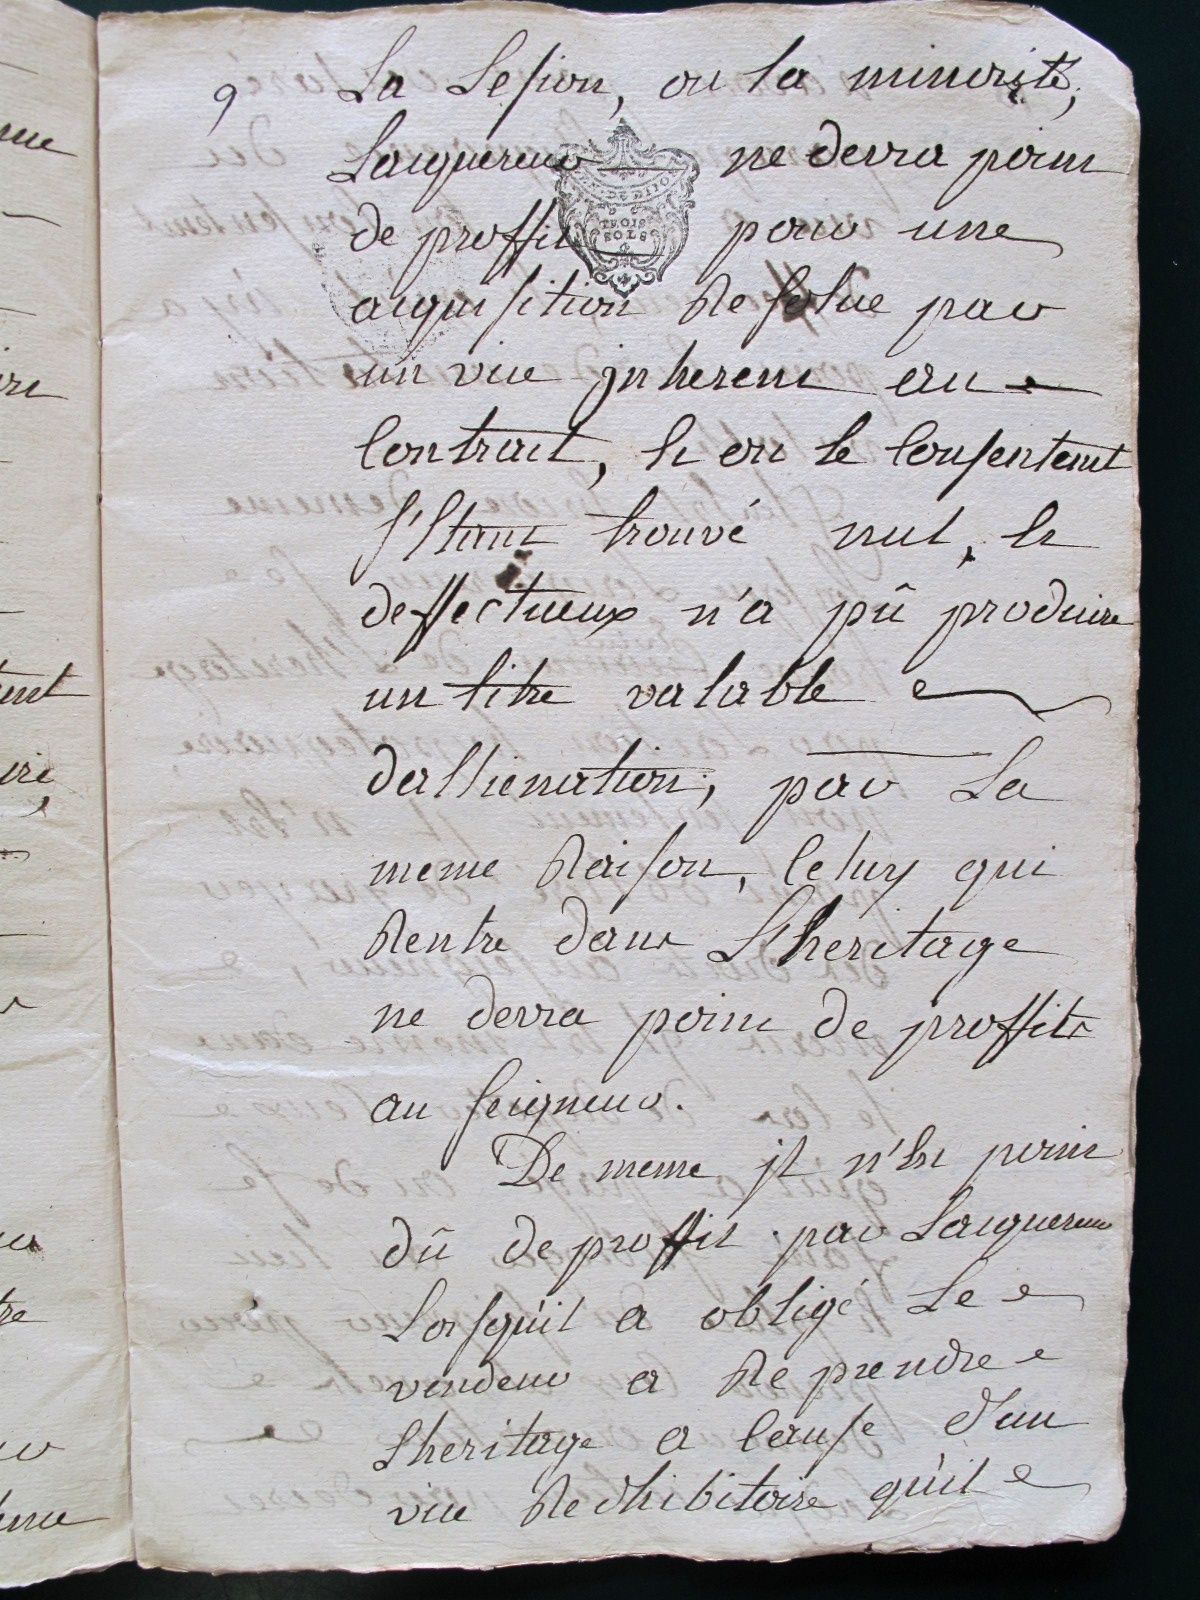 9 La Lesion, ou la minorité,
Lacquereur ne devra point
de proffit pour une
TROIS
SOLS
acquisition Resolue par
un vice jnherent au
Contract, et ou le Consentement
s'Etant trouvé nul, et
deffectueux n'a pû produire
un titre valable
dallienation, par La
meme Raison, Celuy qui
Rentre dans L'heritage
ne devra point de proffits
au seigneur.
De meme jl n'Est point
dû de proffit par Lacquereur
Lorsquil a obligé Le
vendeur a Reprendre
Lheritage a Cause d'un
vice Redhibitoire quil